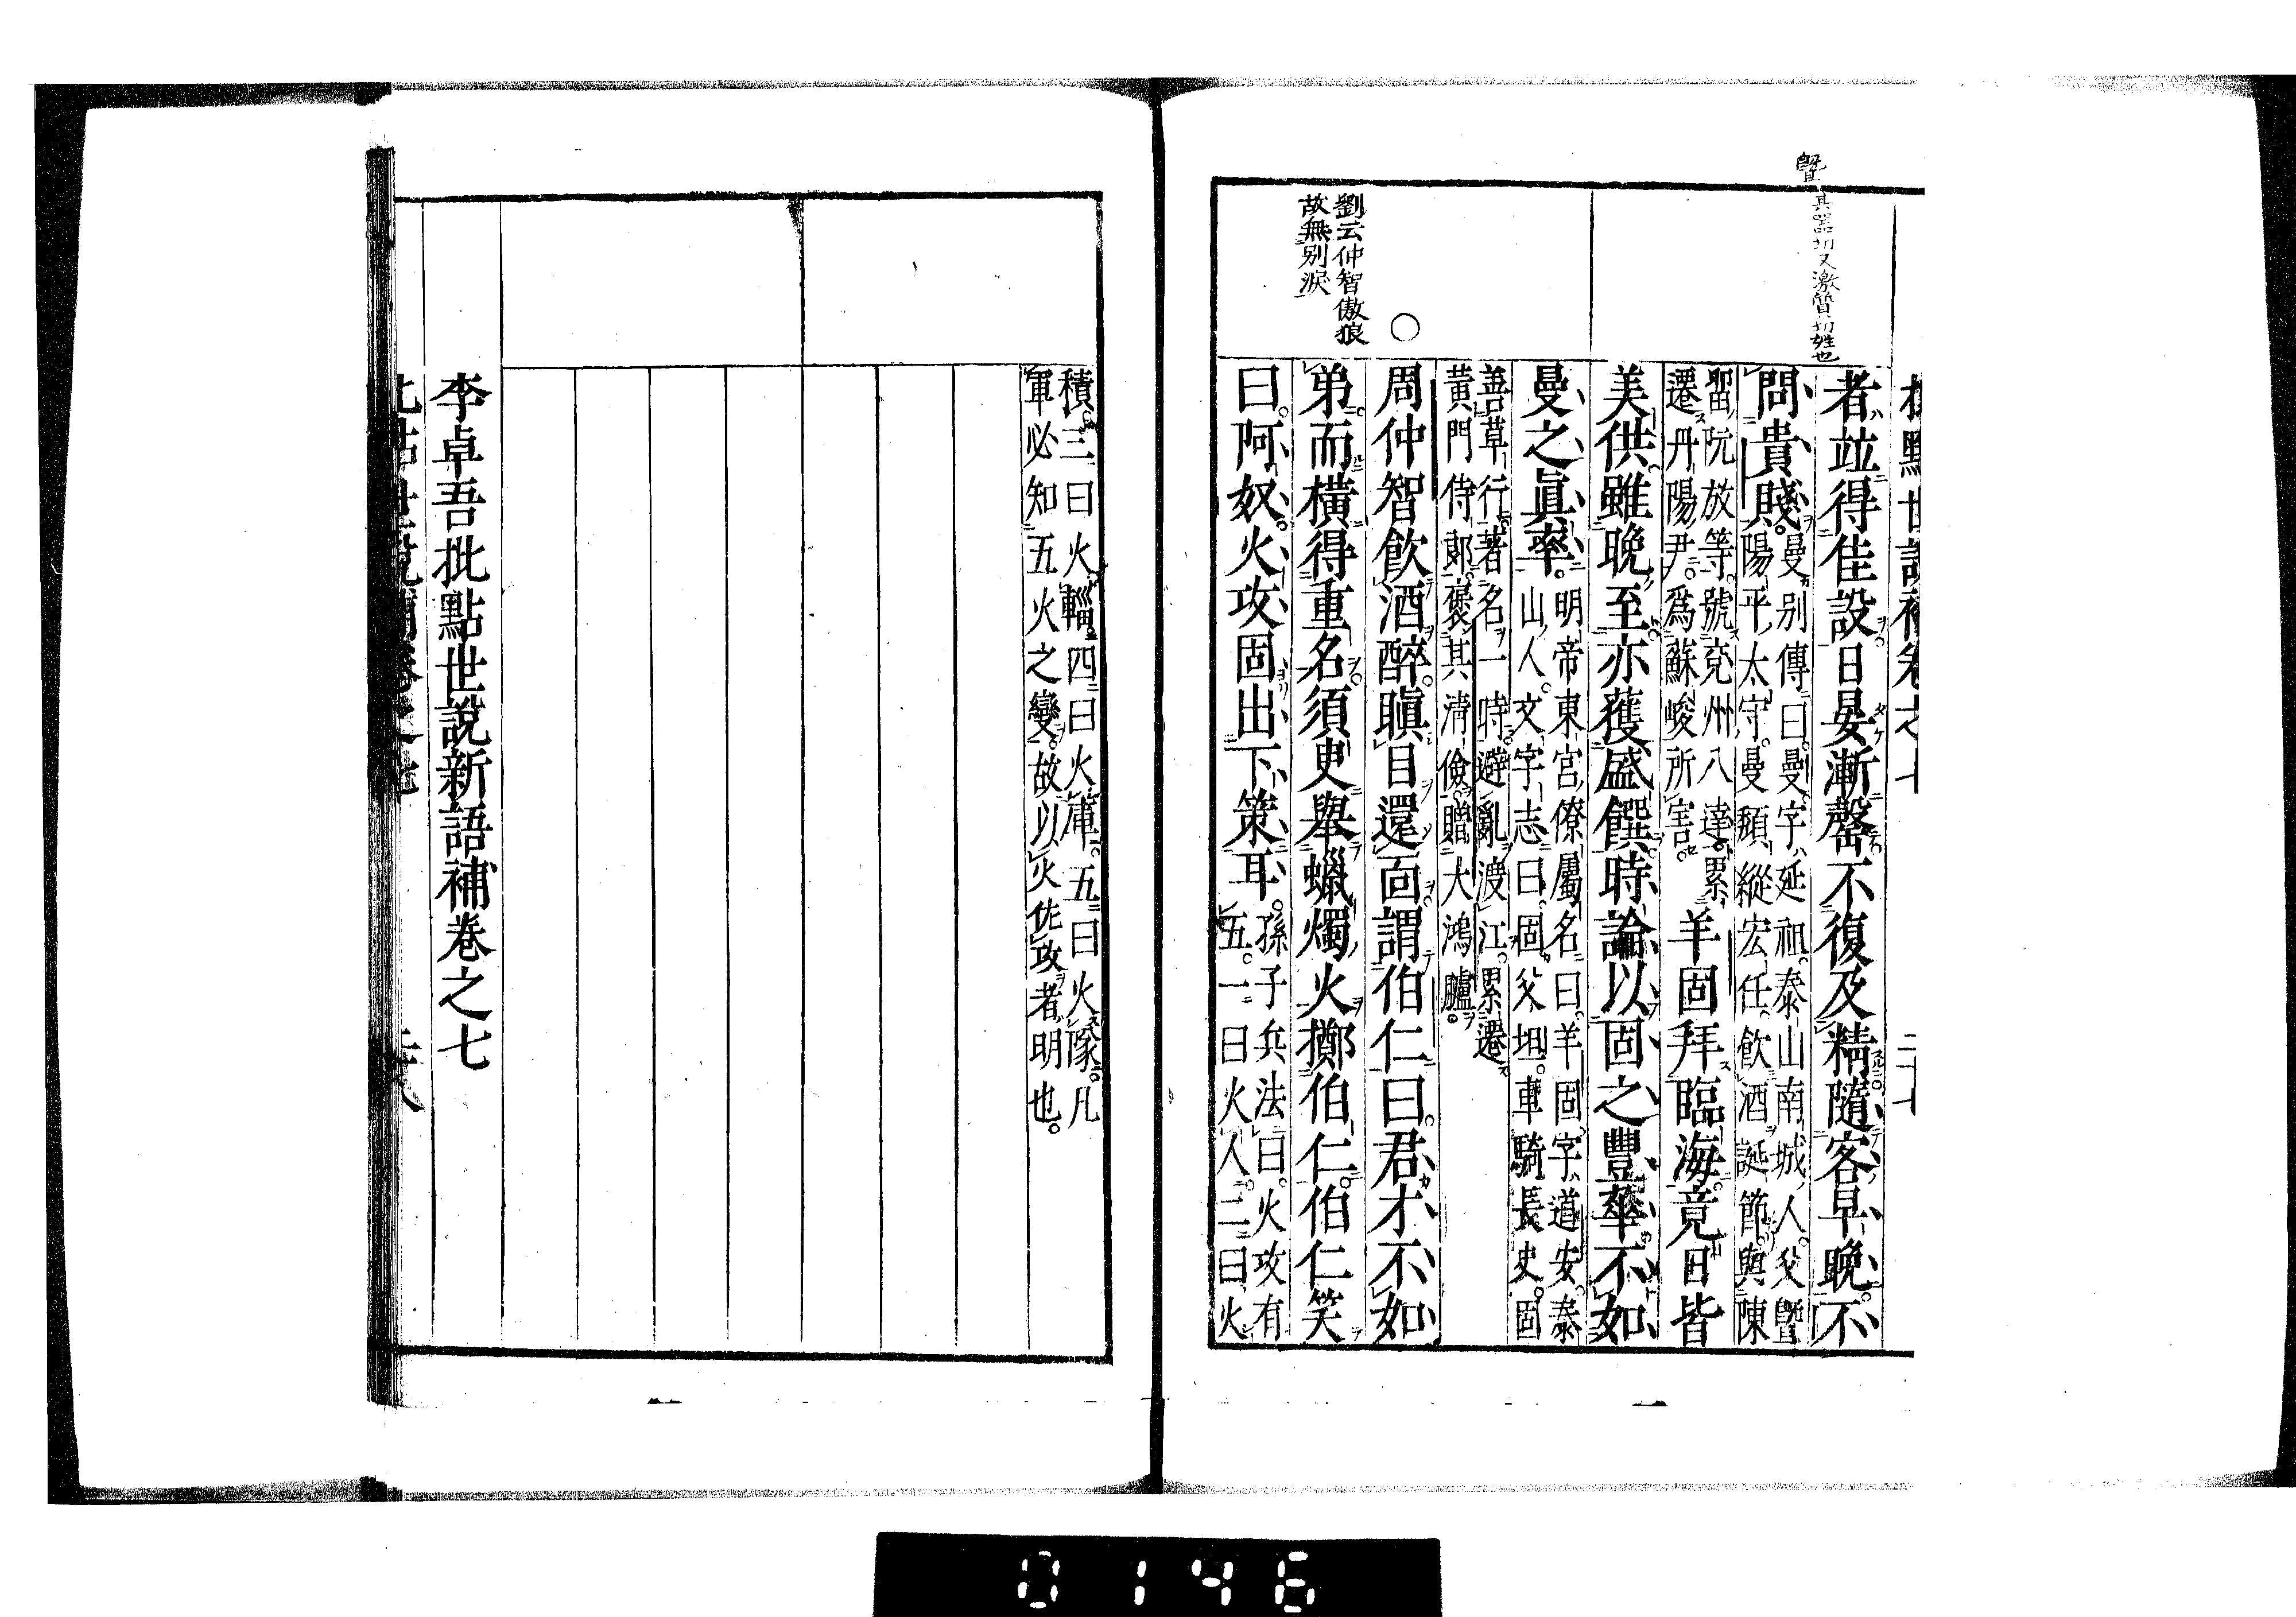 暨其器切又激質切姓也
劉云仲智傲狼
故無別淚
○
者並得佳設日晏漸罄不復及精隨客早晚不
問貴賤。曼別傳曰。曼字延祖。泰山南城人。父暨
陽平太守。曼頹縱宏任。飲酒誕節。與陳
留阮放等。號兗州八達。累
遷丹陽尹。爲蘇峻所害。羊固拜臨海竟日皆
美供雖晚至亦獲盛饌時論以固之豐華不如
曼之眞率。明帝東宮僚屬名曰。羊固字道安。泰
山人。文字志曰。固父坦。車騎長史。固
善草行。著名一時。避亂渡江。累遷
黃門侍郎。褒其淸儉。贈大鴻臚。
周仲智飮酒醉。瞋目還面謂伯仁曰。君才不如
弟。而橫得重名。須臾舉蠟燭火擲伯仁。伯仁笑
曰。阿奴。火攻固出下策耳。孫子兵法曰。火攻有
五。一曰火人。二曰火
積。三曰火輜。四曰火庫。五曰火隊。凡
軍必知五火之變。故以火佐攻者明也。
李卓吾批點世說新語補卷之七